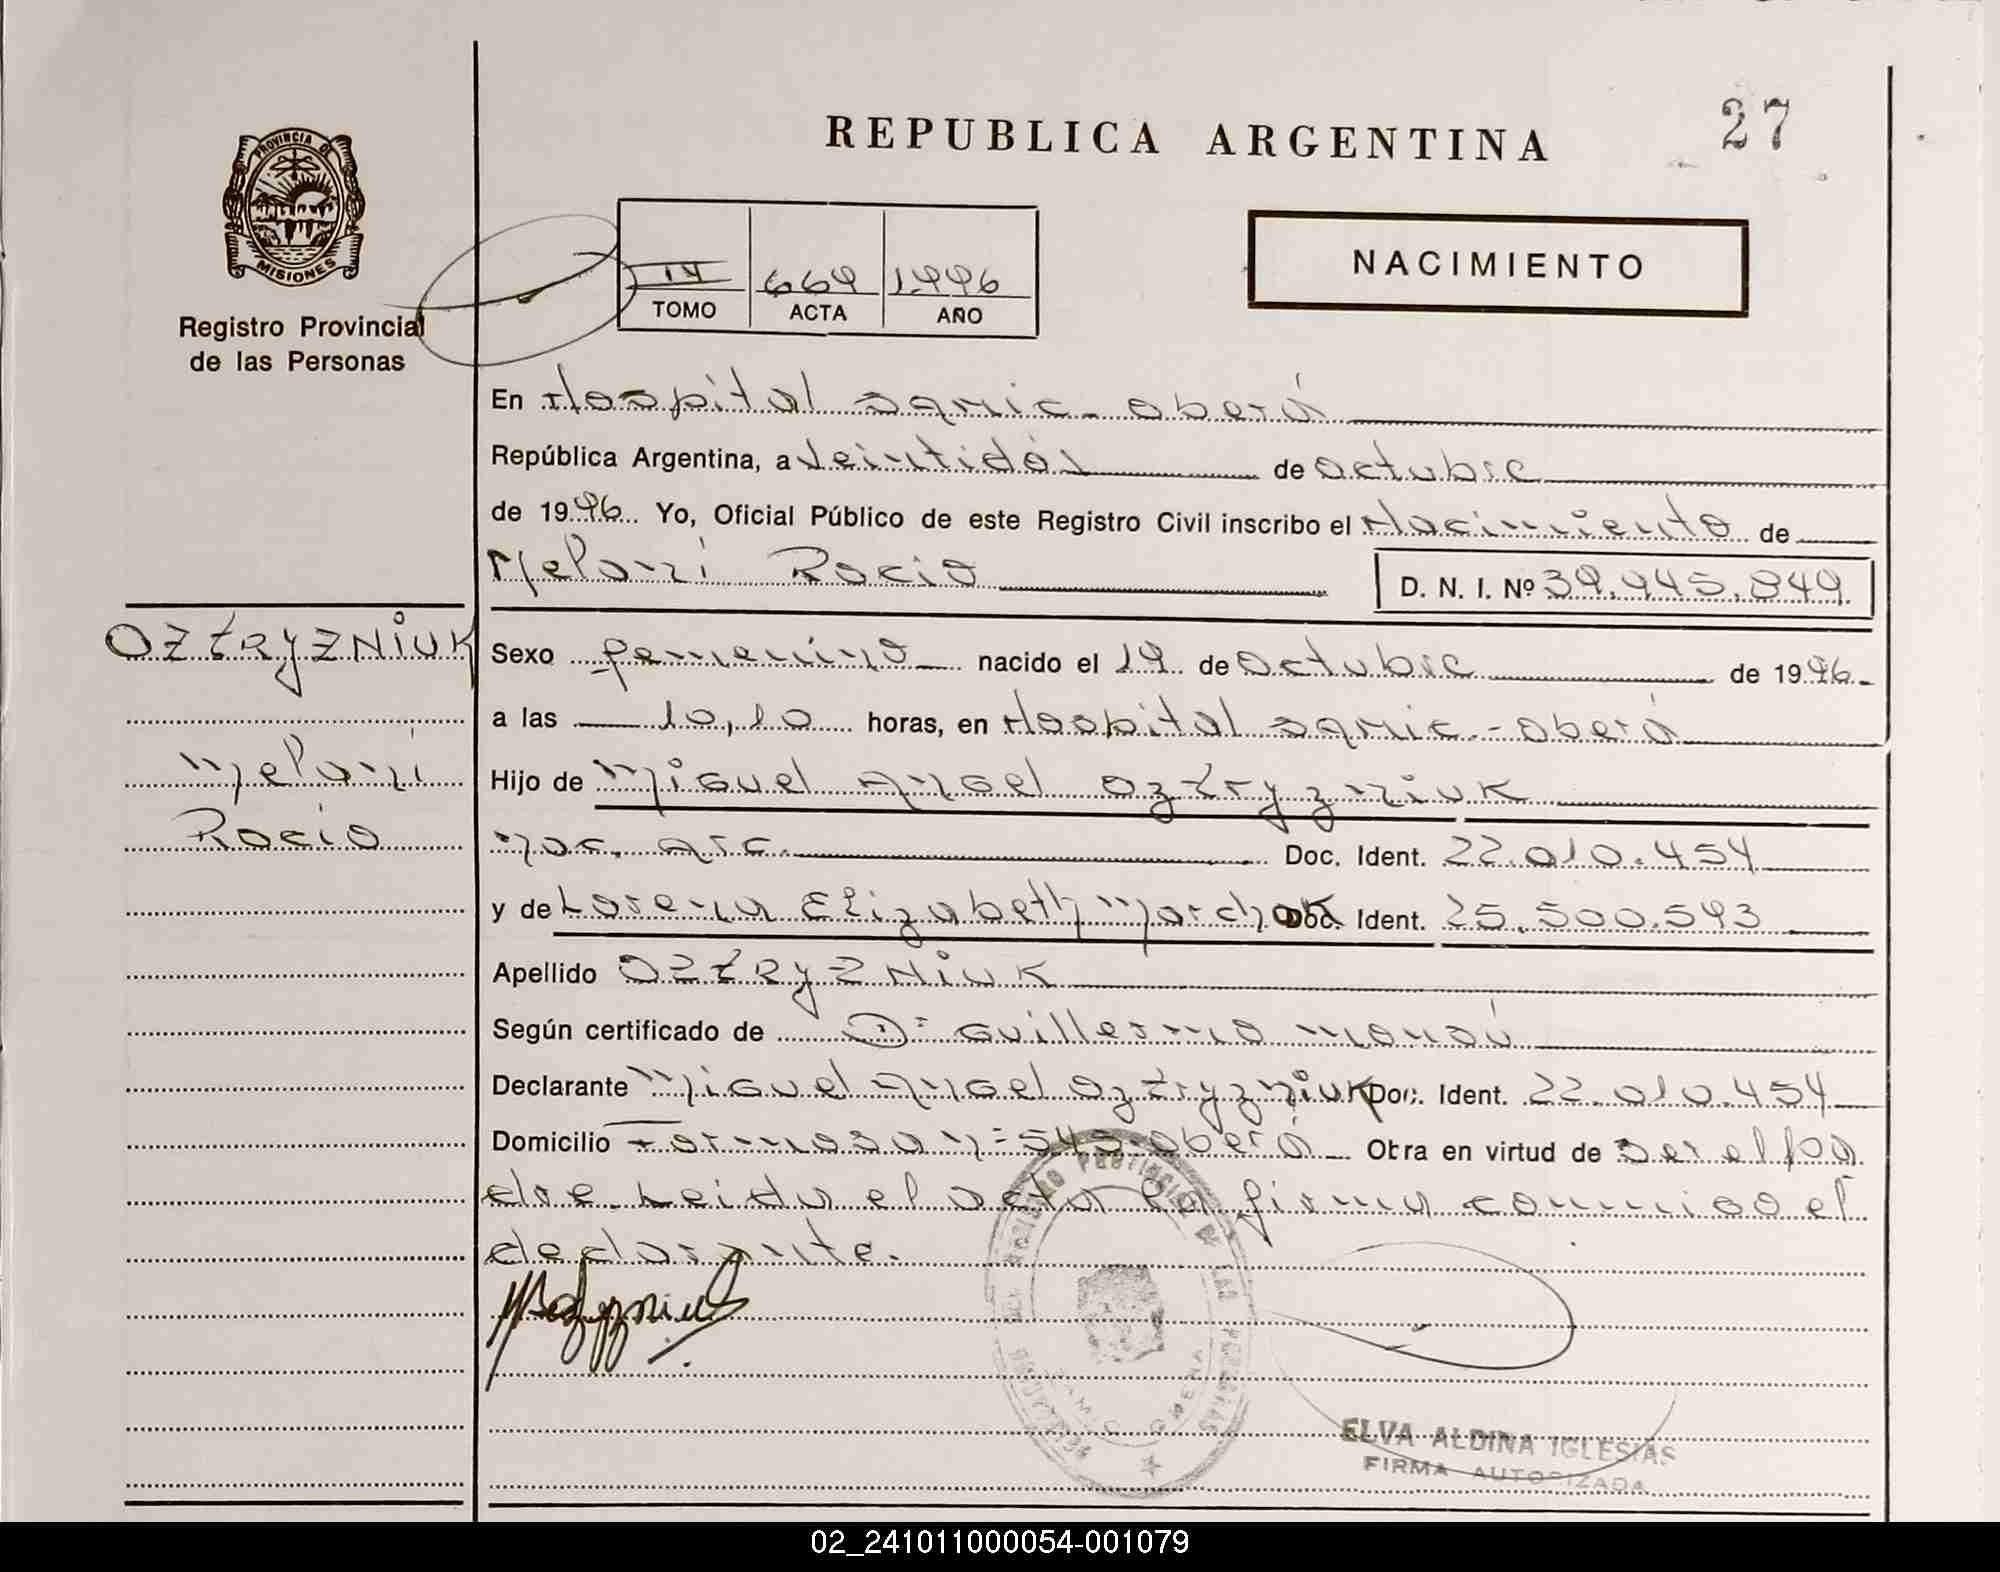 27
REPUBLICA ARGENTINA
PROVINCIA DE
MISIONES
Registro Provincial
de las Personas
IV 664 1.996
TOMO ACTA AÑO
NACIMIENTO
En Hospital samic - oberá
República Argentina, a veintidós de octubre
de 1996 Yo, Oficial Público de este Registro Civil inscribo el Nacimiento de
Melani Rocio D. N. I. Nº 39.945.849
OZTRYZNIUK
Melani
Rocio
Sexo femenino nacido el 19 de octubre de 1996
a las 10,10 horas, en Hospital samic - oberá
Hijo de Miguel Angel Oztryzniuk
nac. arg. Doc. Ident. 22.010.454
y de Lorena Elizabeth Marchok Doc. Ident. 25.500.593
Apellido OZTRYZNIUK
Según certificado de Dr Guillermo
Declarante Miguel Angel Oztryzniuk Doc. Ident. 22.010.454
Domicilio Formosa nº 545 - oberá Obra en virtud de ser el pa
dre. Leida el acta la firma conmigo el
declarante.
REGISTRO PROVINCIAL DE LAS PERSONAS
SAMIC OBERA
ELVA ALDINA IGLESIAS
FIRMA AUTORIZADA
02_241011000054-001079